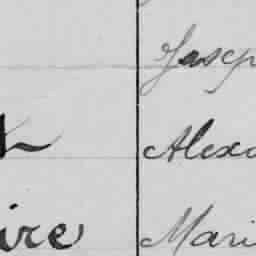 Josep
Alexa
ire Mari